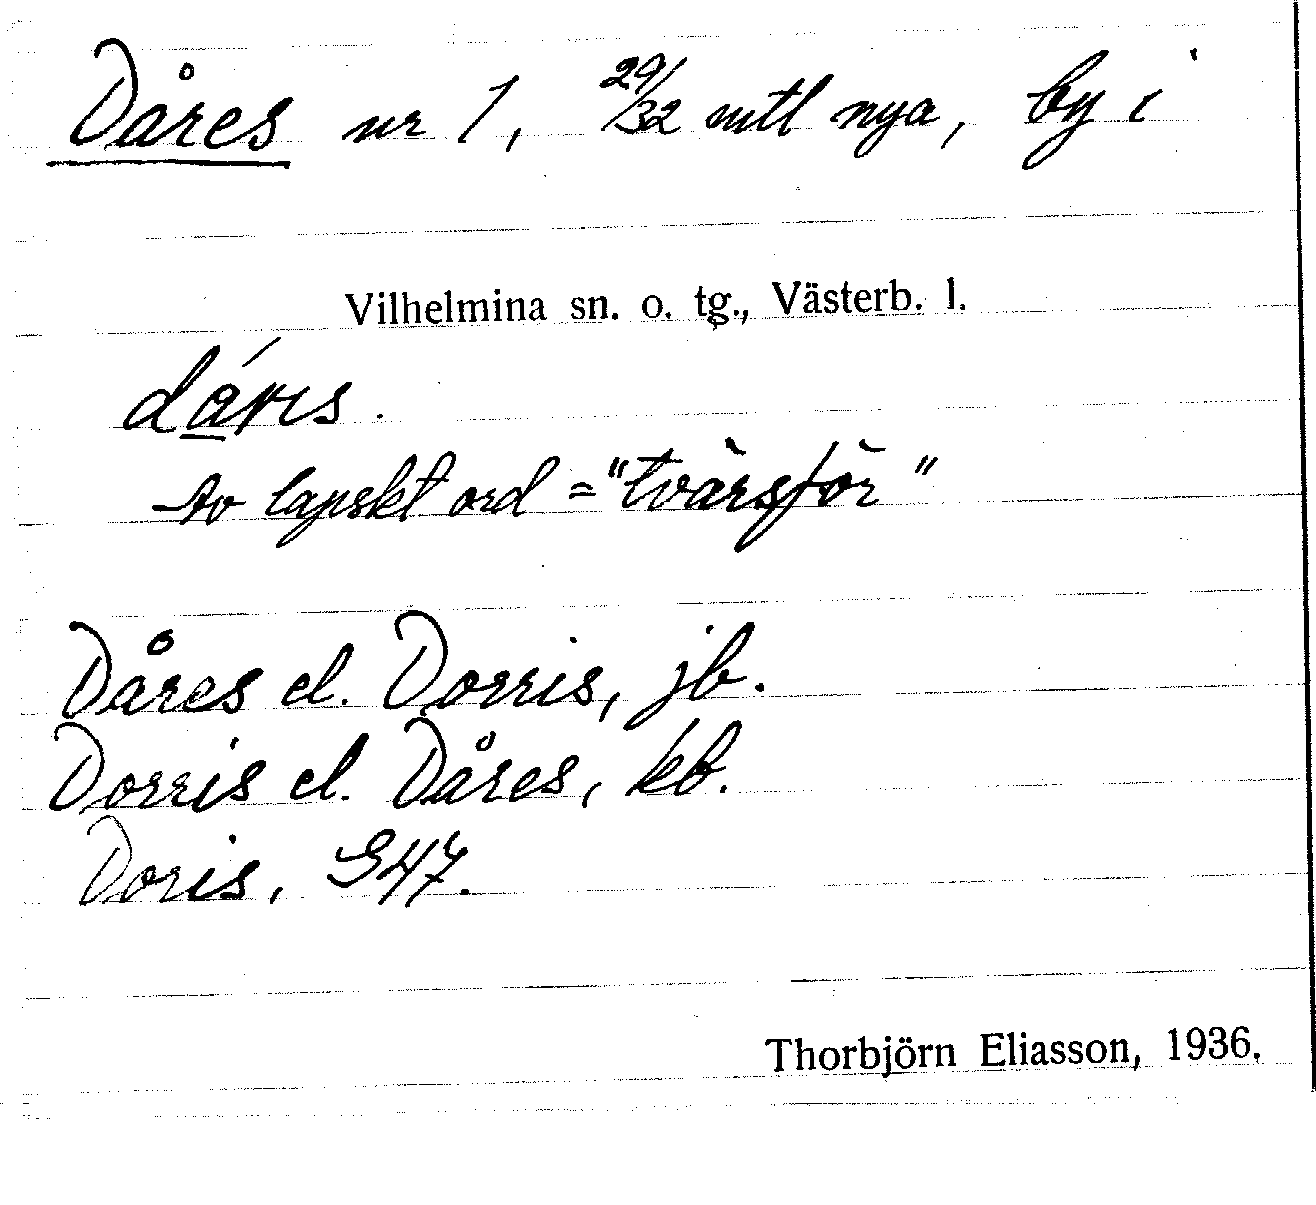 Dåres nr 1, 29/32 mtl nya, by i
Vilhelmina sn. o. tg., Västerb. l.
dá̱rıs.
Av lapskt ord = "tvärsför"
Dåres el. Dorris, jb.
Dorris el. Dåres, kb.
Doris, S47.
Thorbjörn Eliasson, 1936.